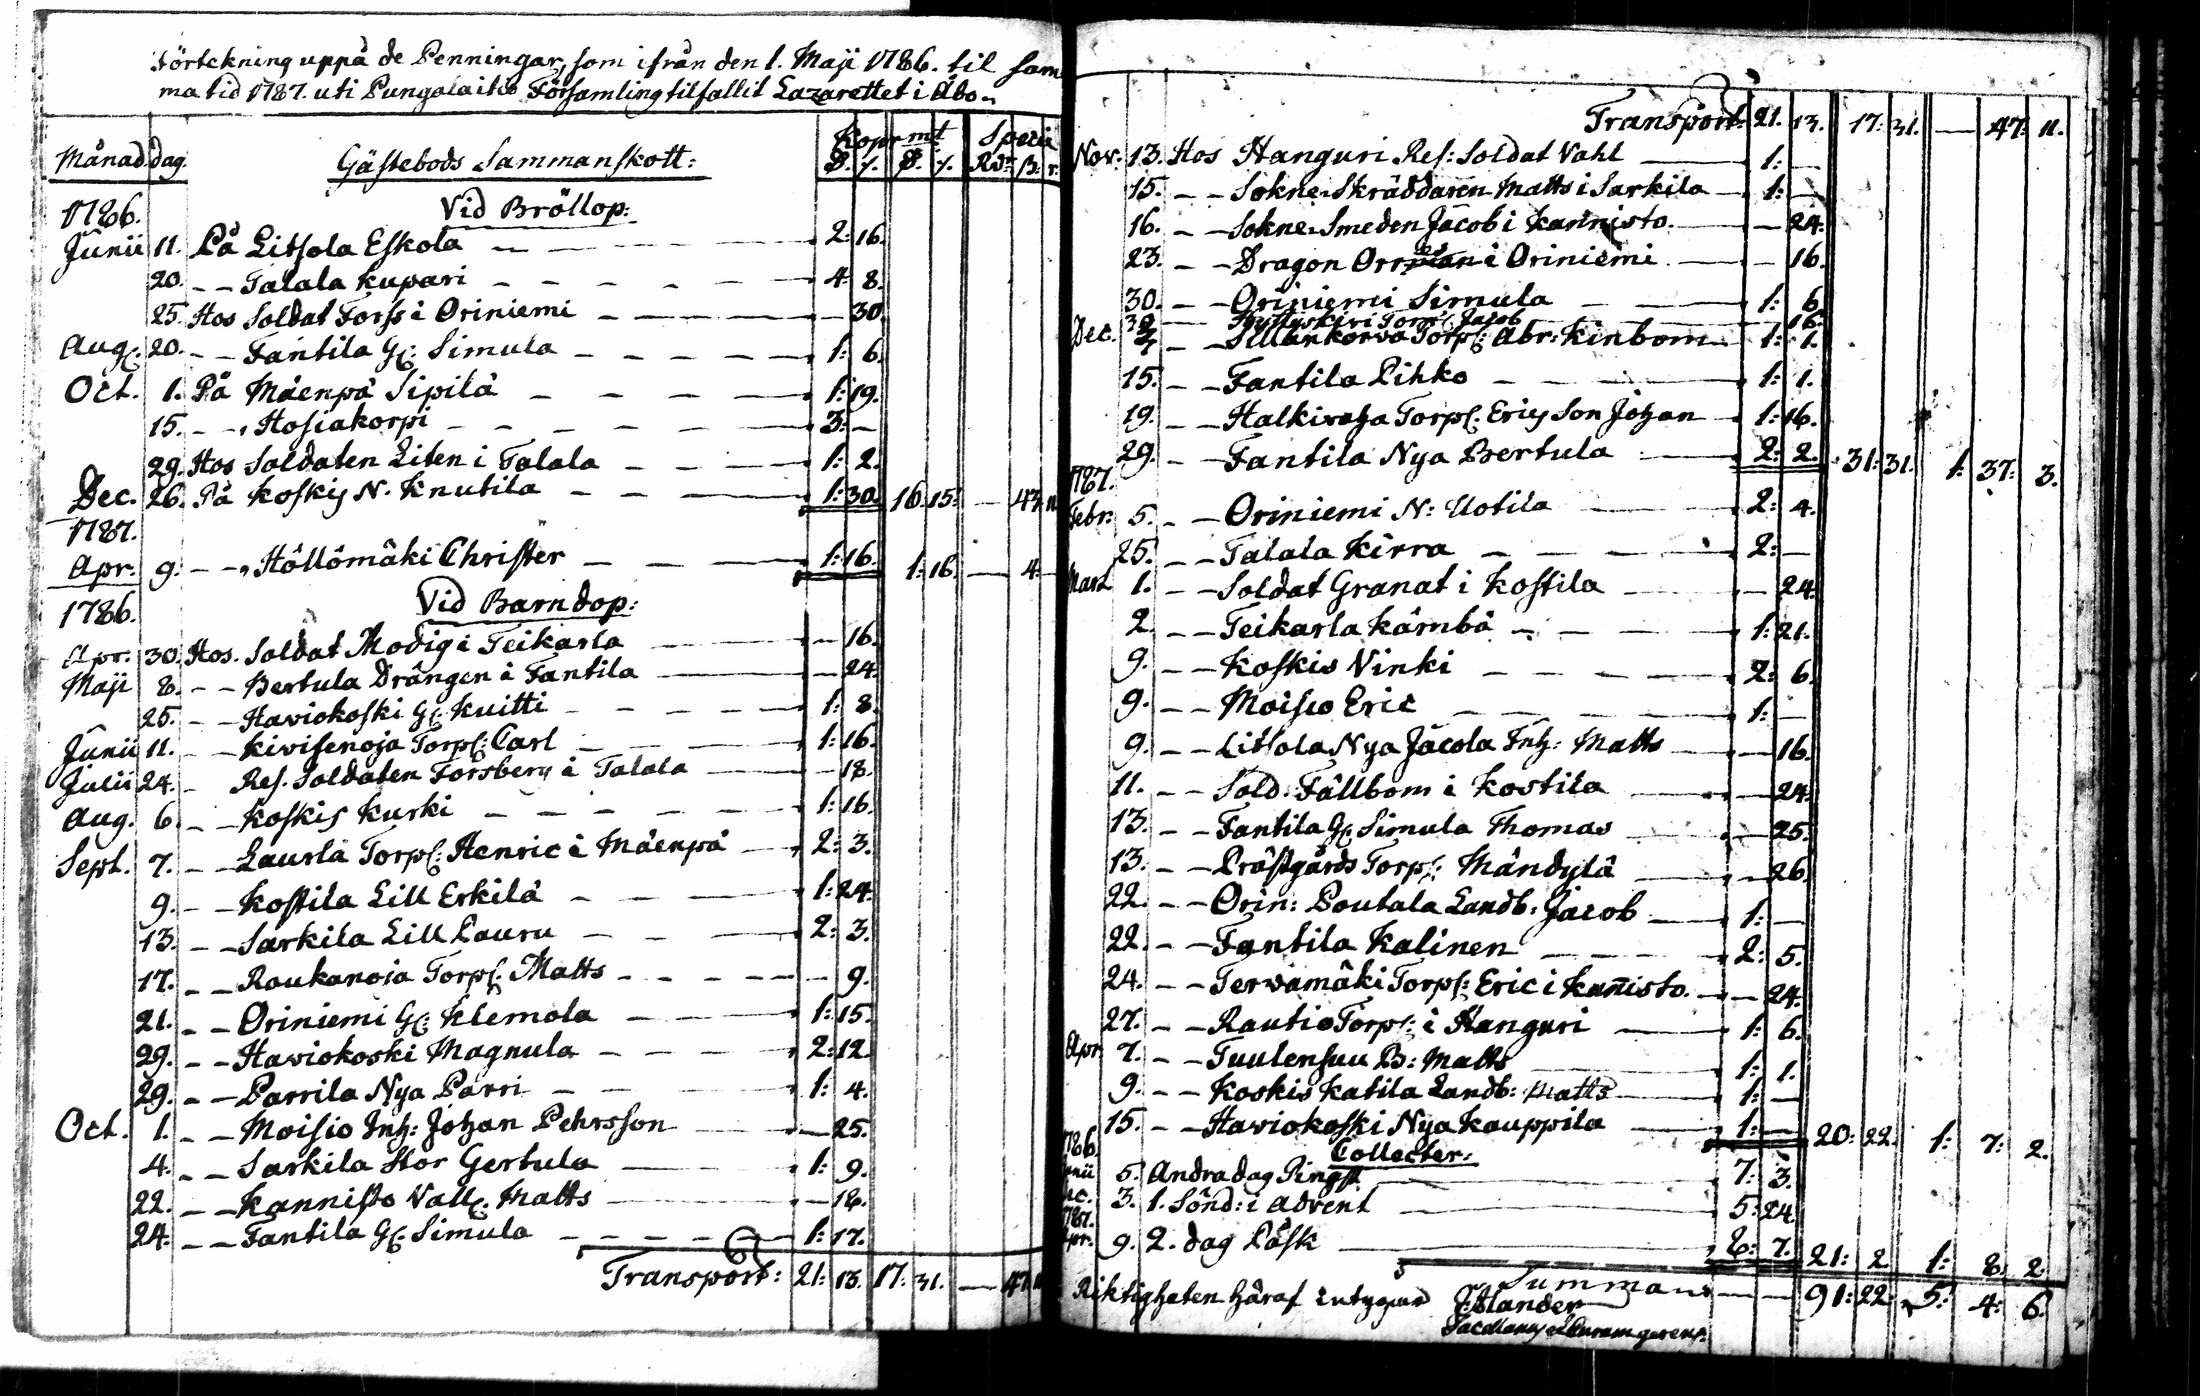 Förteckning uppå de Penningar, som ifrån den 1. Maji 1786. til sam
ma tid 1787. uti Pungalaitio Församling tilfallit Lazarettet i Åbo.
Månad dag. Gästebods Sammanskott: Kopr mt Specie
1786. Vid Bröllop:
Junii 11. På Litsola Eskola 2: 16.
20. Talala Kupari 4: 8.
25. Hos Soldat Forss i Oriniemi 30.
Aug. 20. Fantila G: Simula 1: 6.
Oct. 1. På Mäenpä Sipilä 1: 19.
15. Hosiakorpi 3:
29. Hos Soldaten Liten i Talala 1: 2.
Dec. 26. På Koskis N. Knutila 1: 30. 16. 15: 43.
1787.
Apr. 9. Höllömäki Christer 1: 16. 1: 16. 4:
1786. Vid Barndop:
Apr: 30. Hos Soldat Modig i Teikarla 16.
Maji 8. Bertula Drängen i Fantila 24.
25. Haviokoski G: Kuitti 1: 8.
Junii 11. Kivisenoja Torp: Carl 1: 16.
Julii 24. Res. Soldaten Forsberg i Talala 18.
Aug. 6. Koskis Kurki 1: 16.
Sept. 7. Laurla Torp: Henric i Mäenpä 2: 3.
9. Kostila Lill Erkilä 1: 24.
13. Sarkila Lill Pauru 2: 3.
17. Raukanoja Torp: Matts 9.
21. Oriniemi G: Klemola 1: 15.
29. Haviokoski Magnula 2: 12.
29. Parrila Nya Parri 1: 4.
Oct. 1. Moisio Inh: Johan Pehrsson 25.
4. Sarkila Stor Gertula 1: 9.
22. Kannisto Vall: Matts 18.
24. Fantila G: Simula 1: 17.
Transport: 21: 13. 17: 31. 47.
Transport: 21. 13. 17: 31. 47. 11.
Nov: 13. Hos Hanguri Res: Soldat Vahl 1:
15. Sokne Skräddaren Matts i Sarkila 1:
16. Sokne Smeden Jacob i Kannisto. 24.
23. Dragon i Oriniemi 16.
30. Oriniemi Simula 1: 6.
Torp: Jacob 16.
Dec. Sillankorva Torp: Abr: Kinbom 1: 1.
15. Fantila Pihko 1: 1.
19. Halkivaha Torp: Erics Son Johan 1: 16.
29. Fantila Nya Bertula 2: 2. 31: 31. 1: 37: 3.
1787.
Febr: 5. Oriniemi N: Uotila 2: 4.
25. Talala Kirra 2:
Mart. 1. Soldat Granat i Kostila 24.
2. Teikarla Kämbä 1: 21.
9. Koskis Vinki 2: 6.
9. Moisio Eric 1:
9. Litsola Nya Jacola Inh: Matts 16.
11. Sold. Fällbom i Kostila 24.
13. Fantila G: Simula Thomas 25.
13. Prästgårds Torp: Mändylä 26.
22. Orin: Poutala Landb: Jacob 1:
22. Fantila Kalinen 2: 5.
24. Tervamäki Torp: Eric i Kanisto. 24.
27. Rautio Torp: i Hanguri 1: 6.
Apr. 7. Tuulensuu B: Matts 1: 1.
9. Koskis Katila Landb: Matts 1:
15. Haviokoski Nya Kauppila 1: 20: 22. 1: 7: 2.
1786. Collecter:
5. Andra dag Pingst 7: 3.
3. 1. Sönd: i Advent 5: 24.
1787.
9. 2. dag Påsk 8: 7. 21: 2 1: 8. 2.
Summa 91: 22: 5: 4: 6.
Riktigheten häraf intygar